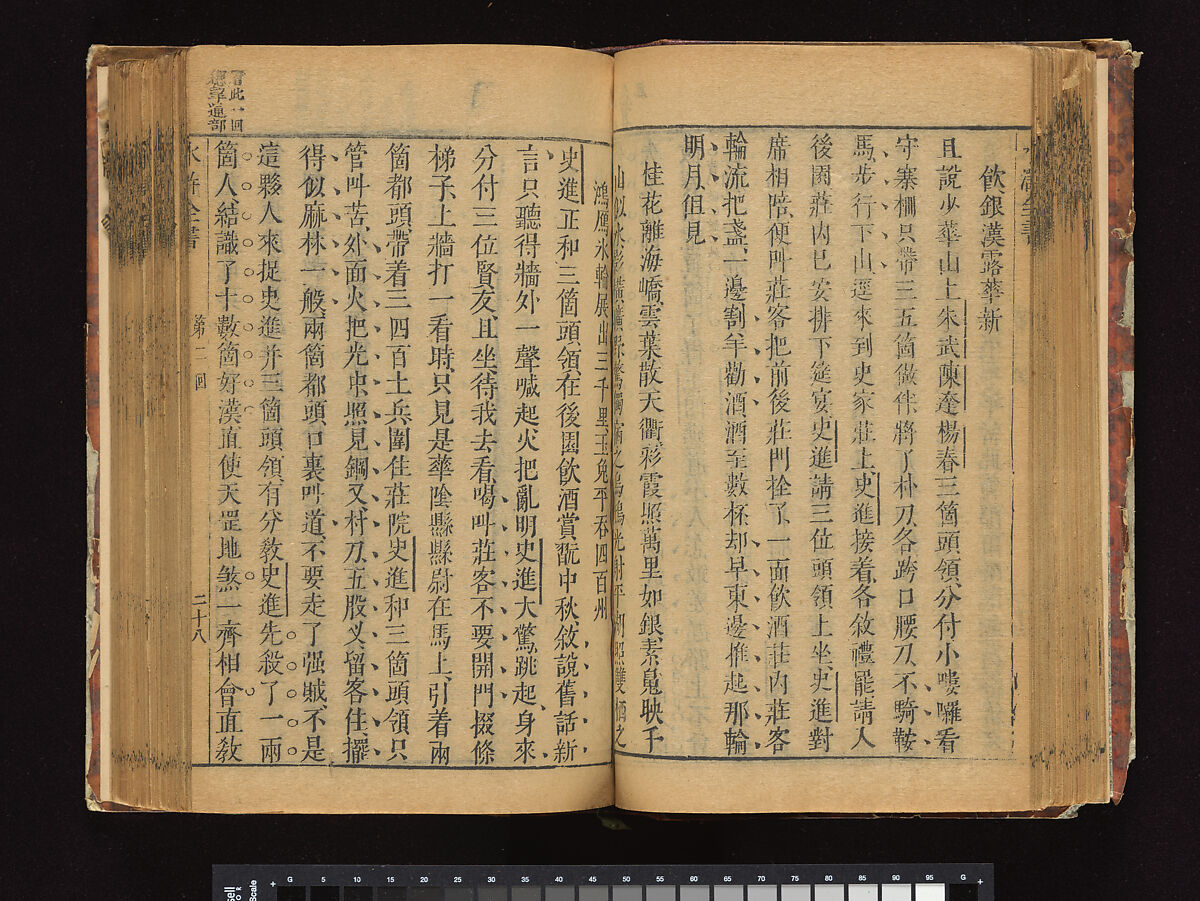 飲銀漢露華新
且說少華山上朱武陳達楊春三箇頭領分付小嘍囉看
守寨柵只帶三五箇做伴將了朴刀各跨口腰刀不騎鞍
馬步行下山逕來到史家莊上史進接着各敘禮罷請入
後園莊內已安排下筵宴史進請三位頭領上坐史進對
席相陪便叫莊客把前後莊門拴了一面飲酒莊內莊客
輪流把盞一邊割羊勸酒酒至數杯却早東邊推起那輪
明月但見
桂花離海嶠雲葉散天衢彩霞照萬里如銀素魄映千
山似水影橫曠野驚獨宿之烏鴉光射平湖照雙栖之
鴻鴈氷輪展出三千里玉兔平吞四百州
史進正和三箇頭領在後園飲酒賞翫中秋敘說舊話新
言只聽得牆外一聲喊起火把亂明史進大驚跳起身來
分付三位賢友且坐待我去看喝叫莊客不要開門掇條
梯子上牆打一看時只見是華陰縣縣尉在馬上引着兩
箇都頭帶着三四百土兵圍住莊院史進和三箇頭領只
管叫苦外面火把光中照見鋼叉朴刀五股叉留客住擺
得似麻林一般兩箇都頭口裏叫道不要走了强賊不是
這夥人來捉史進并三箇頭領有分教史進先殺了一兩
箇人結識了十數箇好漢直使天罡地煞一齊相會直教
水滸全書
第二回
二十八
看此一回
總寔通部
水滸全書
G 5 10 15 20 25 30 35 40 45 50 55 60 65 70 75 80 85 90 95 G
Scale